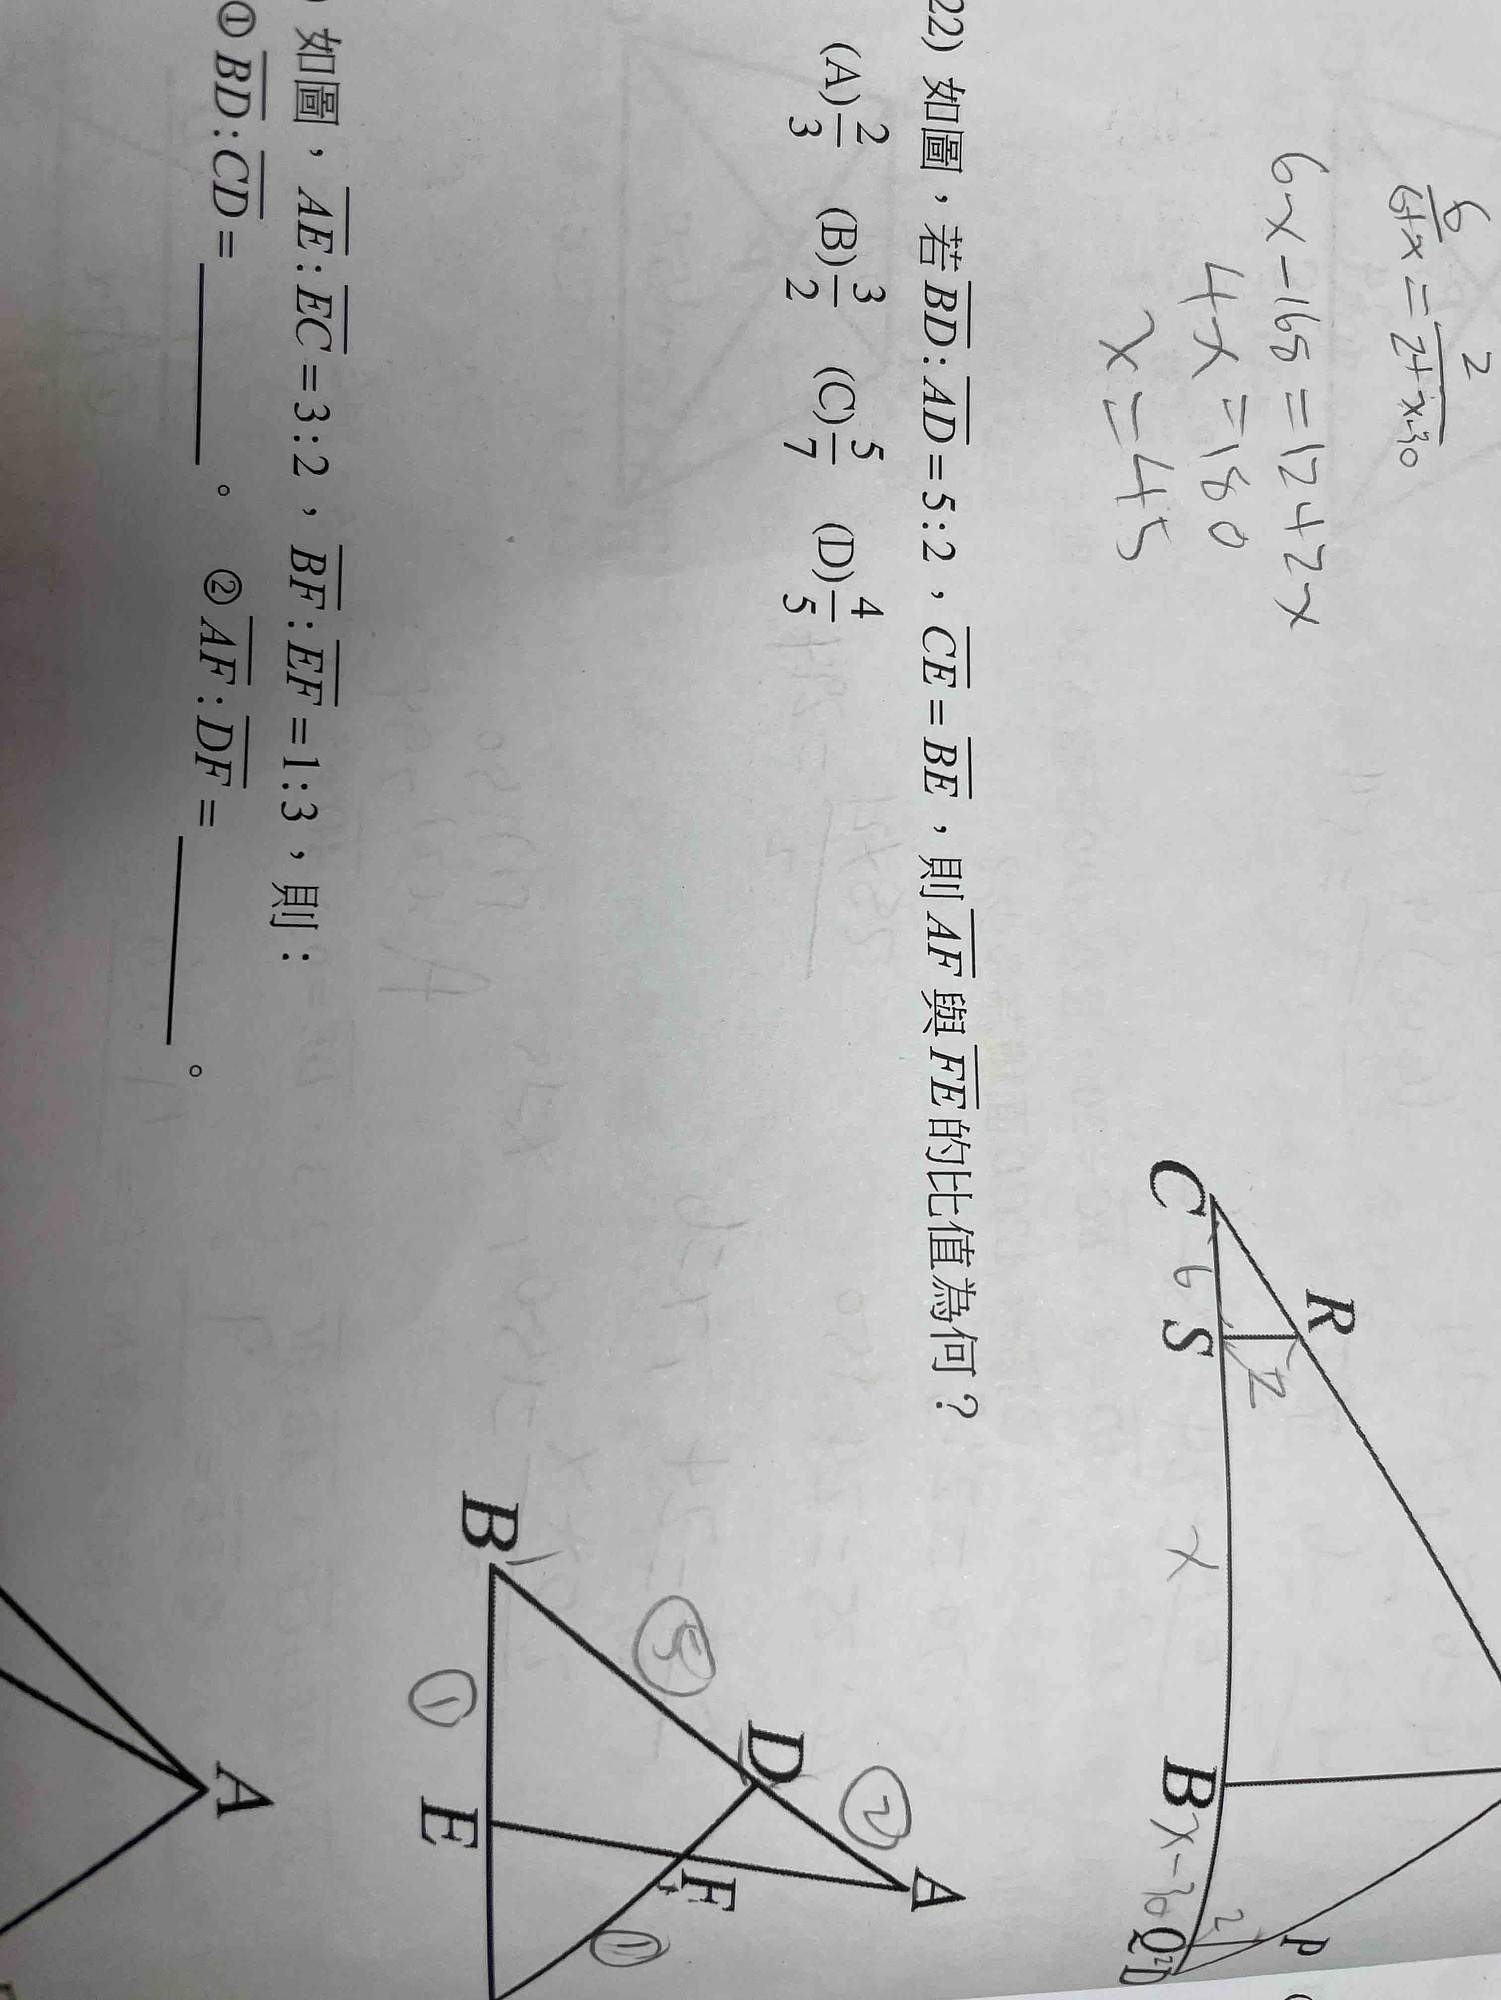 6/(6+x) = 2/(2+x-30)
6x-168=12+2x
4x=180
x=45
C
R
6
S
2
x
B
x-30
Q
2
D
2
P
22) 如圖，若BD:AD=5:2，CE=BE，則AF與FE的比值為何？
(A)2/3 (B)3/2 (C)5/7 (D)4/5
B
5
D
2
A
F
1
1
E
) 如圖，AE:EC=3:2，BF:EF=1:3，則：
①BD:CD=______。②AF:DF=______。
A